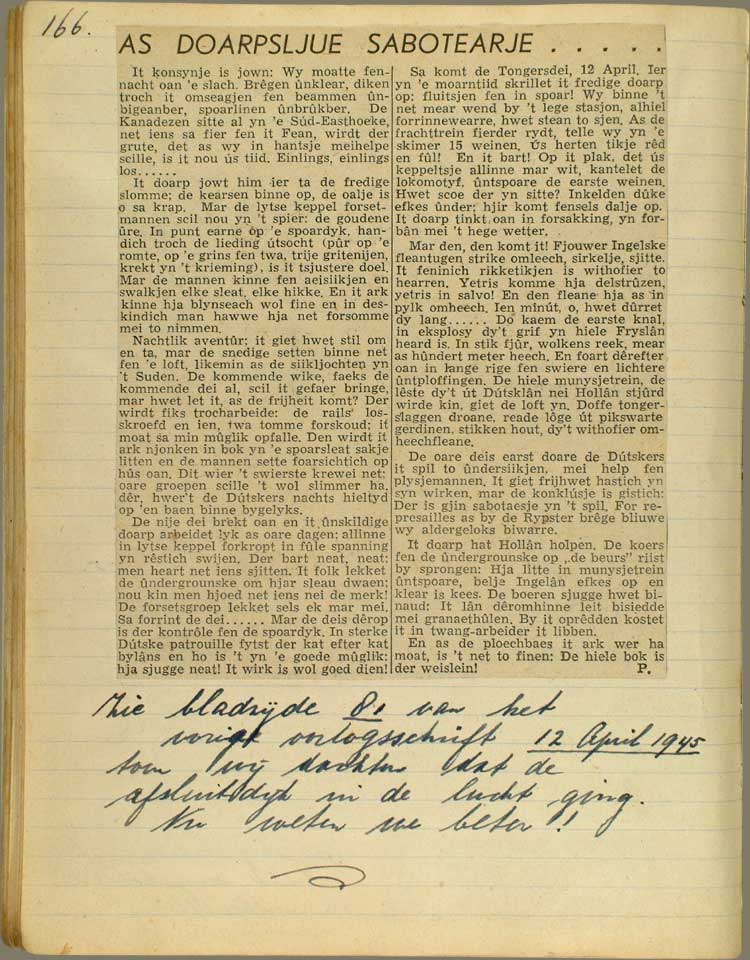 166.
AS DOARPSLJUE SABOTEARJE . . . . .
It konsynje is jown: Wy moatte fen-
nacht oan 'e slach. Brêgen ûnklear, diken
troch it omseagjen fen beammen ûn-
bigeanber, spoarlinen ûnbrûkber. De
Kanadezen sitte al yn 'e Súd-Easthoeke,
net iens sa fier fen it Fean, wirdt der
grute, det as wy in hantsje meihelpe
scille, is it nou ús tiid. Einlings, einlings
los......
It doarp jowt him ier ta de fredige
slomme; de kearsen binne op, de oalje is
o sa krap. Mar de lytse keppel forset-
mannen scil nou yn 't spier: de goudene
ûre. In punt earne op 'e spoardyk, han-
dich troch de lieding útsocht (pûr op 'e
romte, op 'e grins fen twa, trije gritenijen,
krekt yn 't krieming), is it tsjustere doel.
Mar de mannen kinne fen aeisiikjen en
swalkjen elke sleat, elke hikke. En it ark
kinne hja blynseach wol fine en in des-
kindich man hawwe hja net forsomme
mei to nimmen.
Nachtlik aventûr: it giet hwet stil om
en ta, mar de snedige setten binne net
fen 'e loft, likemin as de siikljochten yn
't Suden. De kommende wike, faeks de
kommende dei al, scil it gefaer bringe,
mar hwet let it, as de frijheit komt? Der
wirdt fiks trocharbeide: de rails los-
skroefd en ien, twa tomme forskoud; it
moat sa min mûglik opfalle. Den wirdt it
ark njonken in bok yn 'e spoarsleat sakje
litten en de mannen sette foarsichtich op
hûs oan. Dit wier 't swierste krewei net;
oare groepen scille 't wol slimmer ha,
dêr, hwer't de Dútskers nachts hieltyd
op 'en baen binne bygelyks.
De nije dei brekt oan en it ûnskildige
doarp arbeidet lyk as oare dagen; allinne
in lytse keppel forkropt in fûle spanning
yn rêstich swijen. Der bart neat, neat;
men heart net iens sjitten. It folk lekket
de ûndergrounske om hjar sleau dwaen;
nou kin men hjoed net iens nei de merk!
De forsetsgroep lekket sels ek mar mei.
Sa forrint de dei...... Mar de deis dêrop
is der kontrôle fen de spoardyk. In sterke
Dútske patrouille fytst der kat efter kat
bylâns en ho is 't yn 'e goede mûglik:
hja sjugge neat! It wirk is wol goed dien!
Sa komt de Tongersdei, 12 April. Ier
yn 'e moarntiid skrillet it fredige doarp
op: fluitsjen fen in spoar! Wy binne 't
net mear wend by 't lege stasjon, alhiel
forrinnewearre, hwet stean to sjen. As de
frachttrein fierder rydt, telle wy yn 'e
skimer 15 weinen. Ús herten tikje rêd
en fûl! En it bart! Op it plak, det ús
keppeltsje allinne mar wit, kantelet de
lokomotyf, ûntspoare de earste weinen.
Hwet scoe der yn sitte? Inkelden dûke
efkes ûnder; hjir komt fensels dalje op.
It doarp tinkt oan in forsakking, yn for-
bân mei 't hege wetter.
Mar den, den komt it! Fjouwer Ingelske
fleantugen strike omleech, sirkelje, sjitte.
It feninich rikketikjen is withofier to
hearren. Yetris komme hja delstrûzen,
yetris in salvo! En den fleane hja as in
pylk omheech. Ien minút, o, hwet dûrret
dy lang...... Do kaem de earste knal,
in eksplosy dy't grif yn hiele Fryslân
heard is. In stik fjûr, wolkens reek, mear
as hûndert meter heech. En foart dêrefter
oan in lange rige fen swiere en lichtere
ûntploffingen. De hiele munysjetrein, de
lêste dy't út Dútsklân nei Hollân stjûrd
wirde kin, giet de loft yn. Doffe tonger-
slaggen droane, reade lôge út pikswarte
gerdinen, stikken hout, dy't withofier om-
heechfleane.
De oare deis earst doare de Dútskers
it spil to ûndersiikjen, mei help fen
plysjemannen. It giet frijhwet hastich yn
syn wirken, mar de konklúsje is gistich:
Der is gjin sabotaesje yn 't spil. For re-
presailles as by de Rypster brêge bliuwe
wy aldergeloks biwarre.
It doarp hat Hollân holpen. De koers
fen de ûndergrounske op „de beurs" riist
by sprongen: Hja litte in munysjetrein
ûntspoare, belje Ingelân efkes op en
klear is kees. De boeren sjugge hwet bi-
naud: It lân dêromhinne leit bisiedde
mei granaethûlen. By it oprêdden kostet
it in twang-arbeider it libben.
En as de ploechbaes it ark wer ha
moat, is 't net to finen: De hiele bok is
der weislein! P.
Zie bladzijde 81 van het
vorige oorlogsschrift 12 April 1945
toen wij dachten dat de
afsluitdijk in de lucht ging.
Nu weten we beter!